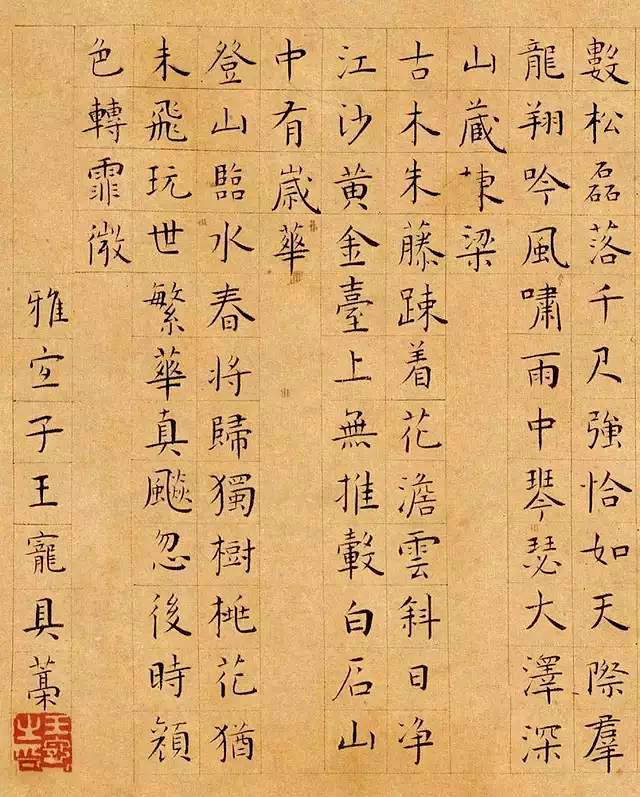 數松磊落千尺強恰如天際羣
龍翔吟風嘯雨中琴瑟大澤深
山蔵棟梁
古木朱藤踈着花澹雲斜日净
江沙黄金臺上無推轂白石山
中有嵗華
登山臨水春将歸獨樹桃花猶
未飛玩世繁華真飈忽後時顔
色轉霏微
雅宜子王寵具藁
王寵之印